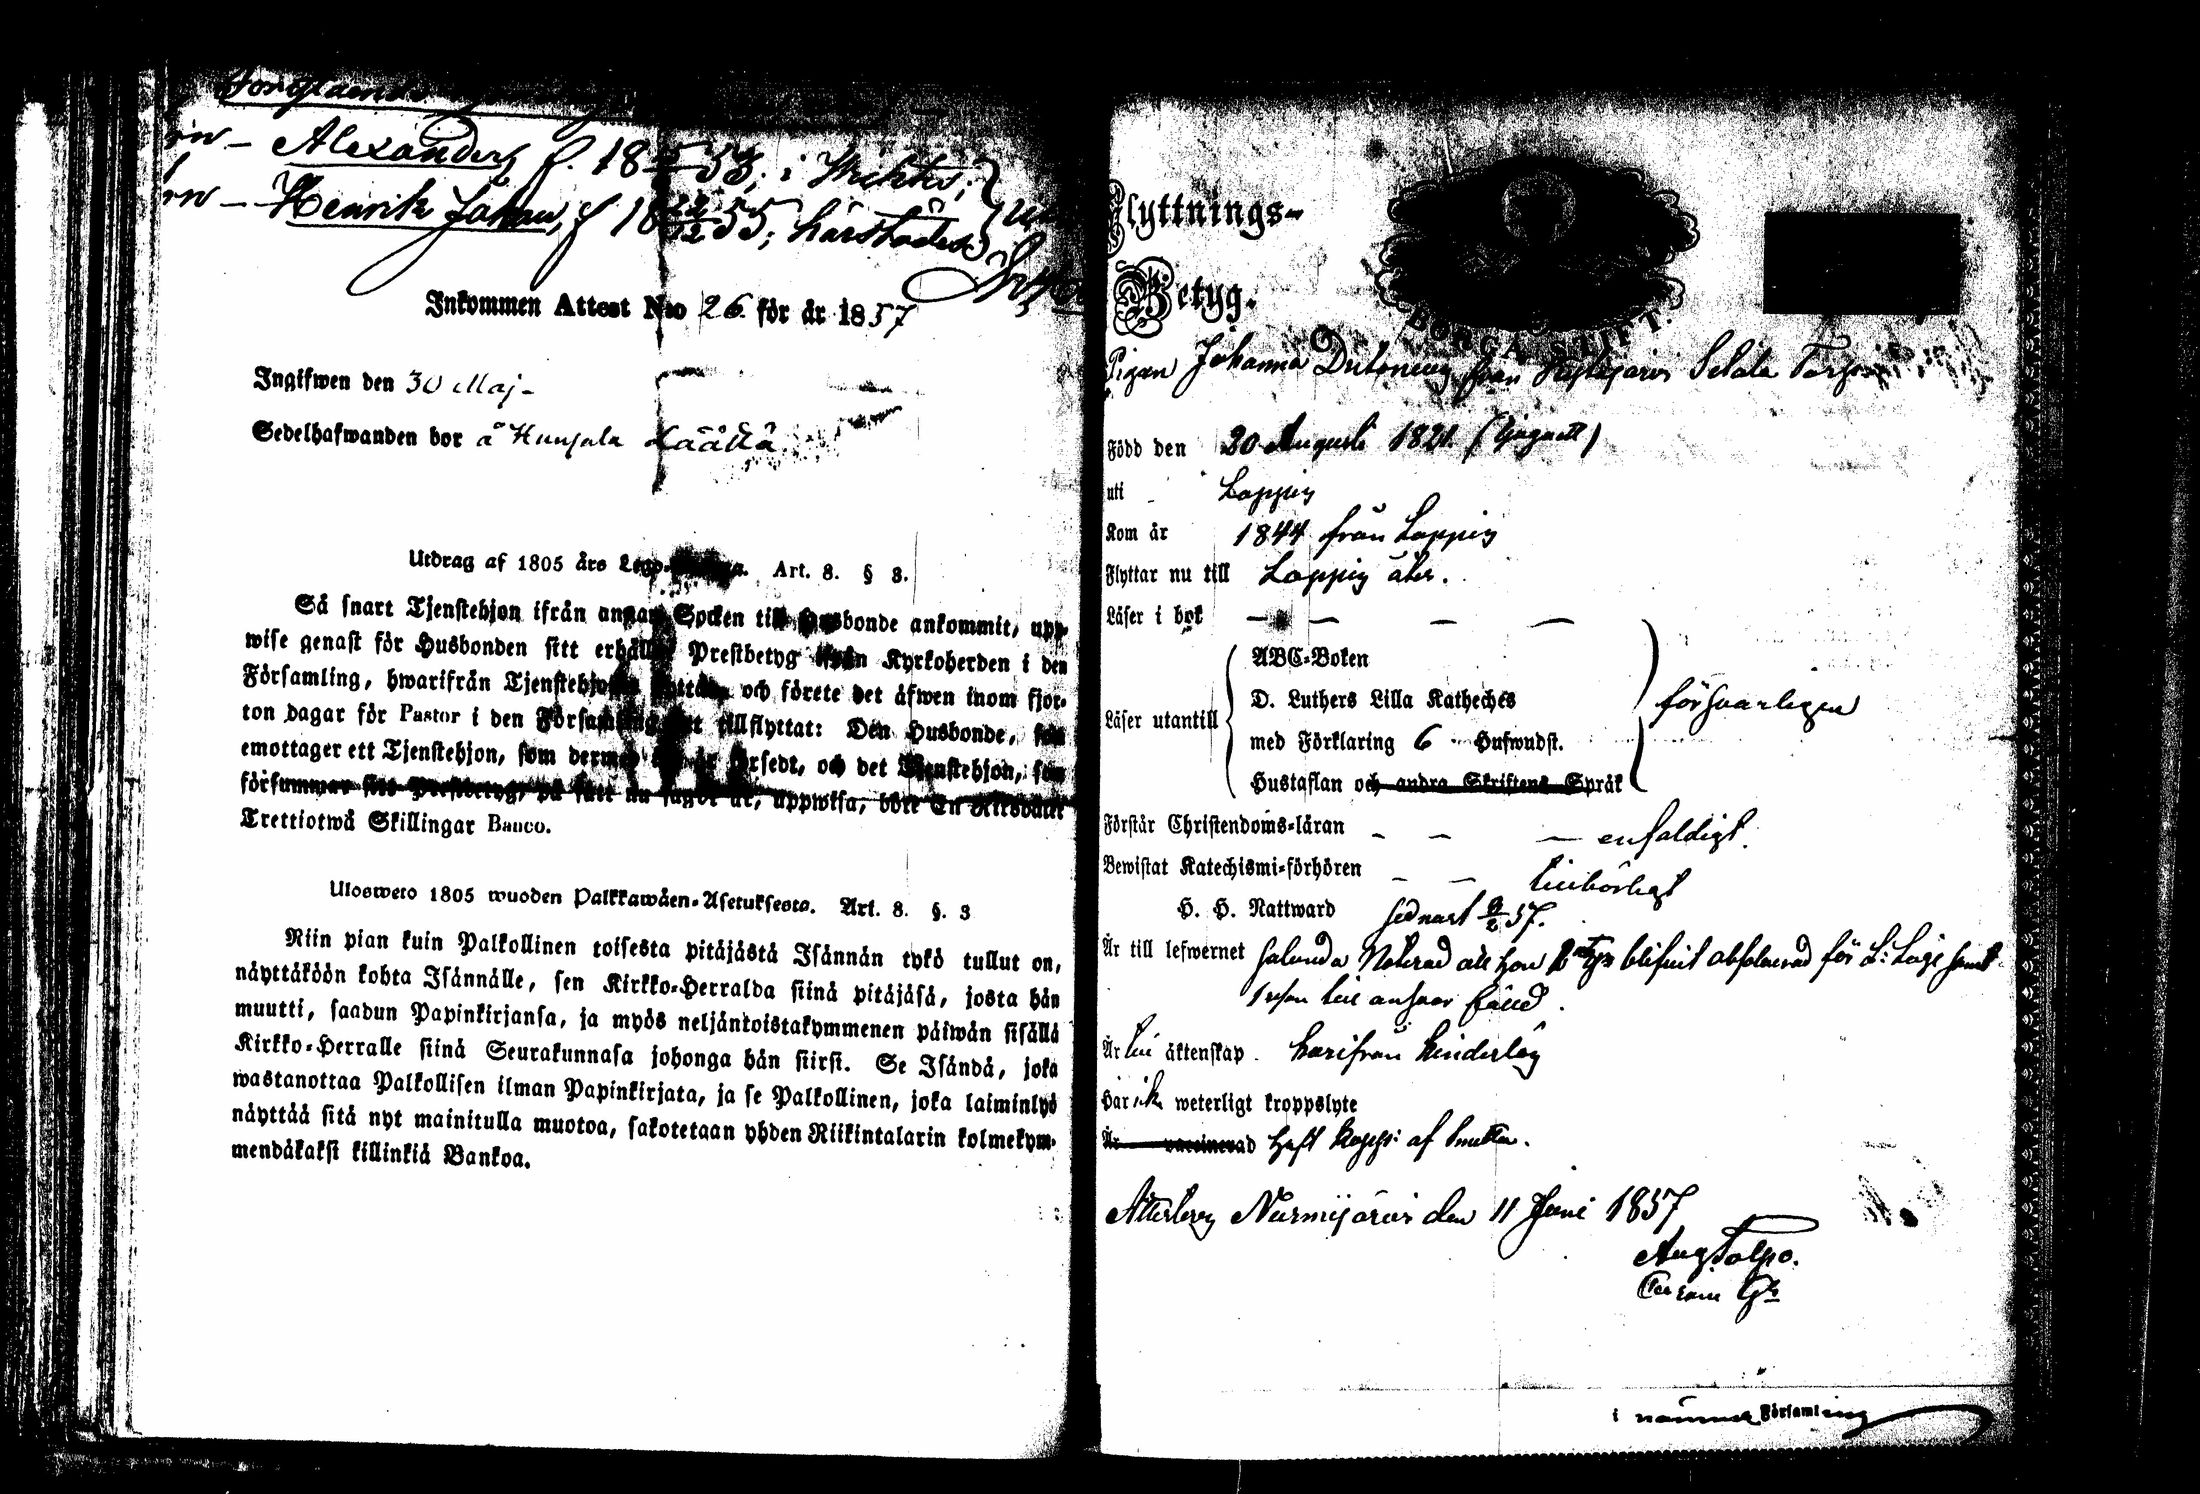 Alexander, f. 18 53; i Wichtis;
Henrik Johan, f 18 22/12 55; härstädes
Inkommen Attest N:o 26 för år 1857
Ingifwen den 30 Maj
Sedelhafwanden bor å Hunsala Läätsä
Utdrag af 1805 års Art. 8. § 3.
Så snart Tjenstehjon ifrån annan Socken till Husbonde ankommit, upp-
wise genast för Husbonden sitt erhållna Prestbetyg ifrån Kyrkoherden i den
Församling, hwarifrån Tjenstehjonet flyttat, och förete det äfwen inom fjor-
ton dagar för Pastor i den Församling det tillflyttat: Den Husbonde, som
emottager ett Tjenstehjon, som dermed icke är försedt, och det Tjenstehjon, som
försummar sitt Prestbetyg, på sätt nu sagdt är, uppwisa, böte En Riksdaler
Trettiotwå Skillingar Banco.
Ulosweto 1805 wuoden Palkkawäen-Asetuksesta. Art. 8. §. 3
Niin pian kuin Palkollinen toisesta pitäjästä Isännän tykö tullut on,
näyttäköön kohta Isännälle, sen Kirkko-Herralda siinä pitäjäsä, josta hän
muutti, saadun Papinkirjansa, ja myös neljäntoistakymmenen päiwän sisällä
Kirkko-Herralle siinä Seurakunnasa johonga hän siirsi. Se Isändä, joka
wastanottaa Palkollisen ilman Papinkirjata, ja se Palkollinen, joka laiminlyö
näyttää sitä nyt mainitulla muotoa, sakotetaan yhden Riikintalarin kolmekym-
mendäkaksi killinkiä Bankoa.
Flyttnings-
Betyg.
BORGÅ STIFT.
Pigan Johanna från Selola
Född den 20 Augusti 1821. (Tjuguett)
uti Loppis
Kom år 1844 från Loppis
Flyttar nu till Loppis åter.
Läser i bok — — — —
Läser utantill
ABC-Boken
D. Luthers Lilla Kateches
med Förklaring 6 Hufwudst.
Hustaflan och andra Skriftens Språk
försvarligen
Förstår Christendoms-läran — — — enfaldigt.
Bewistat Katechismi-förhören — — tillbörligt
H. H. Nattward sednast 57.
Är till lefwernet sålunda Noterad att hon blifvit absolverad för L: Läge samt
Är till äktenskap. härifrån hinderlös
Har ick weterligt kroppslyte
Är vaccinerad haft koppor af
Attesterar Nurmijärvi den 11 Juni 1857
Aug Tolpo.
i nämnde Församling